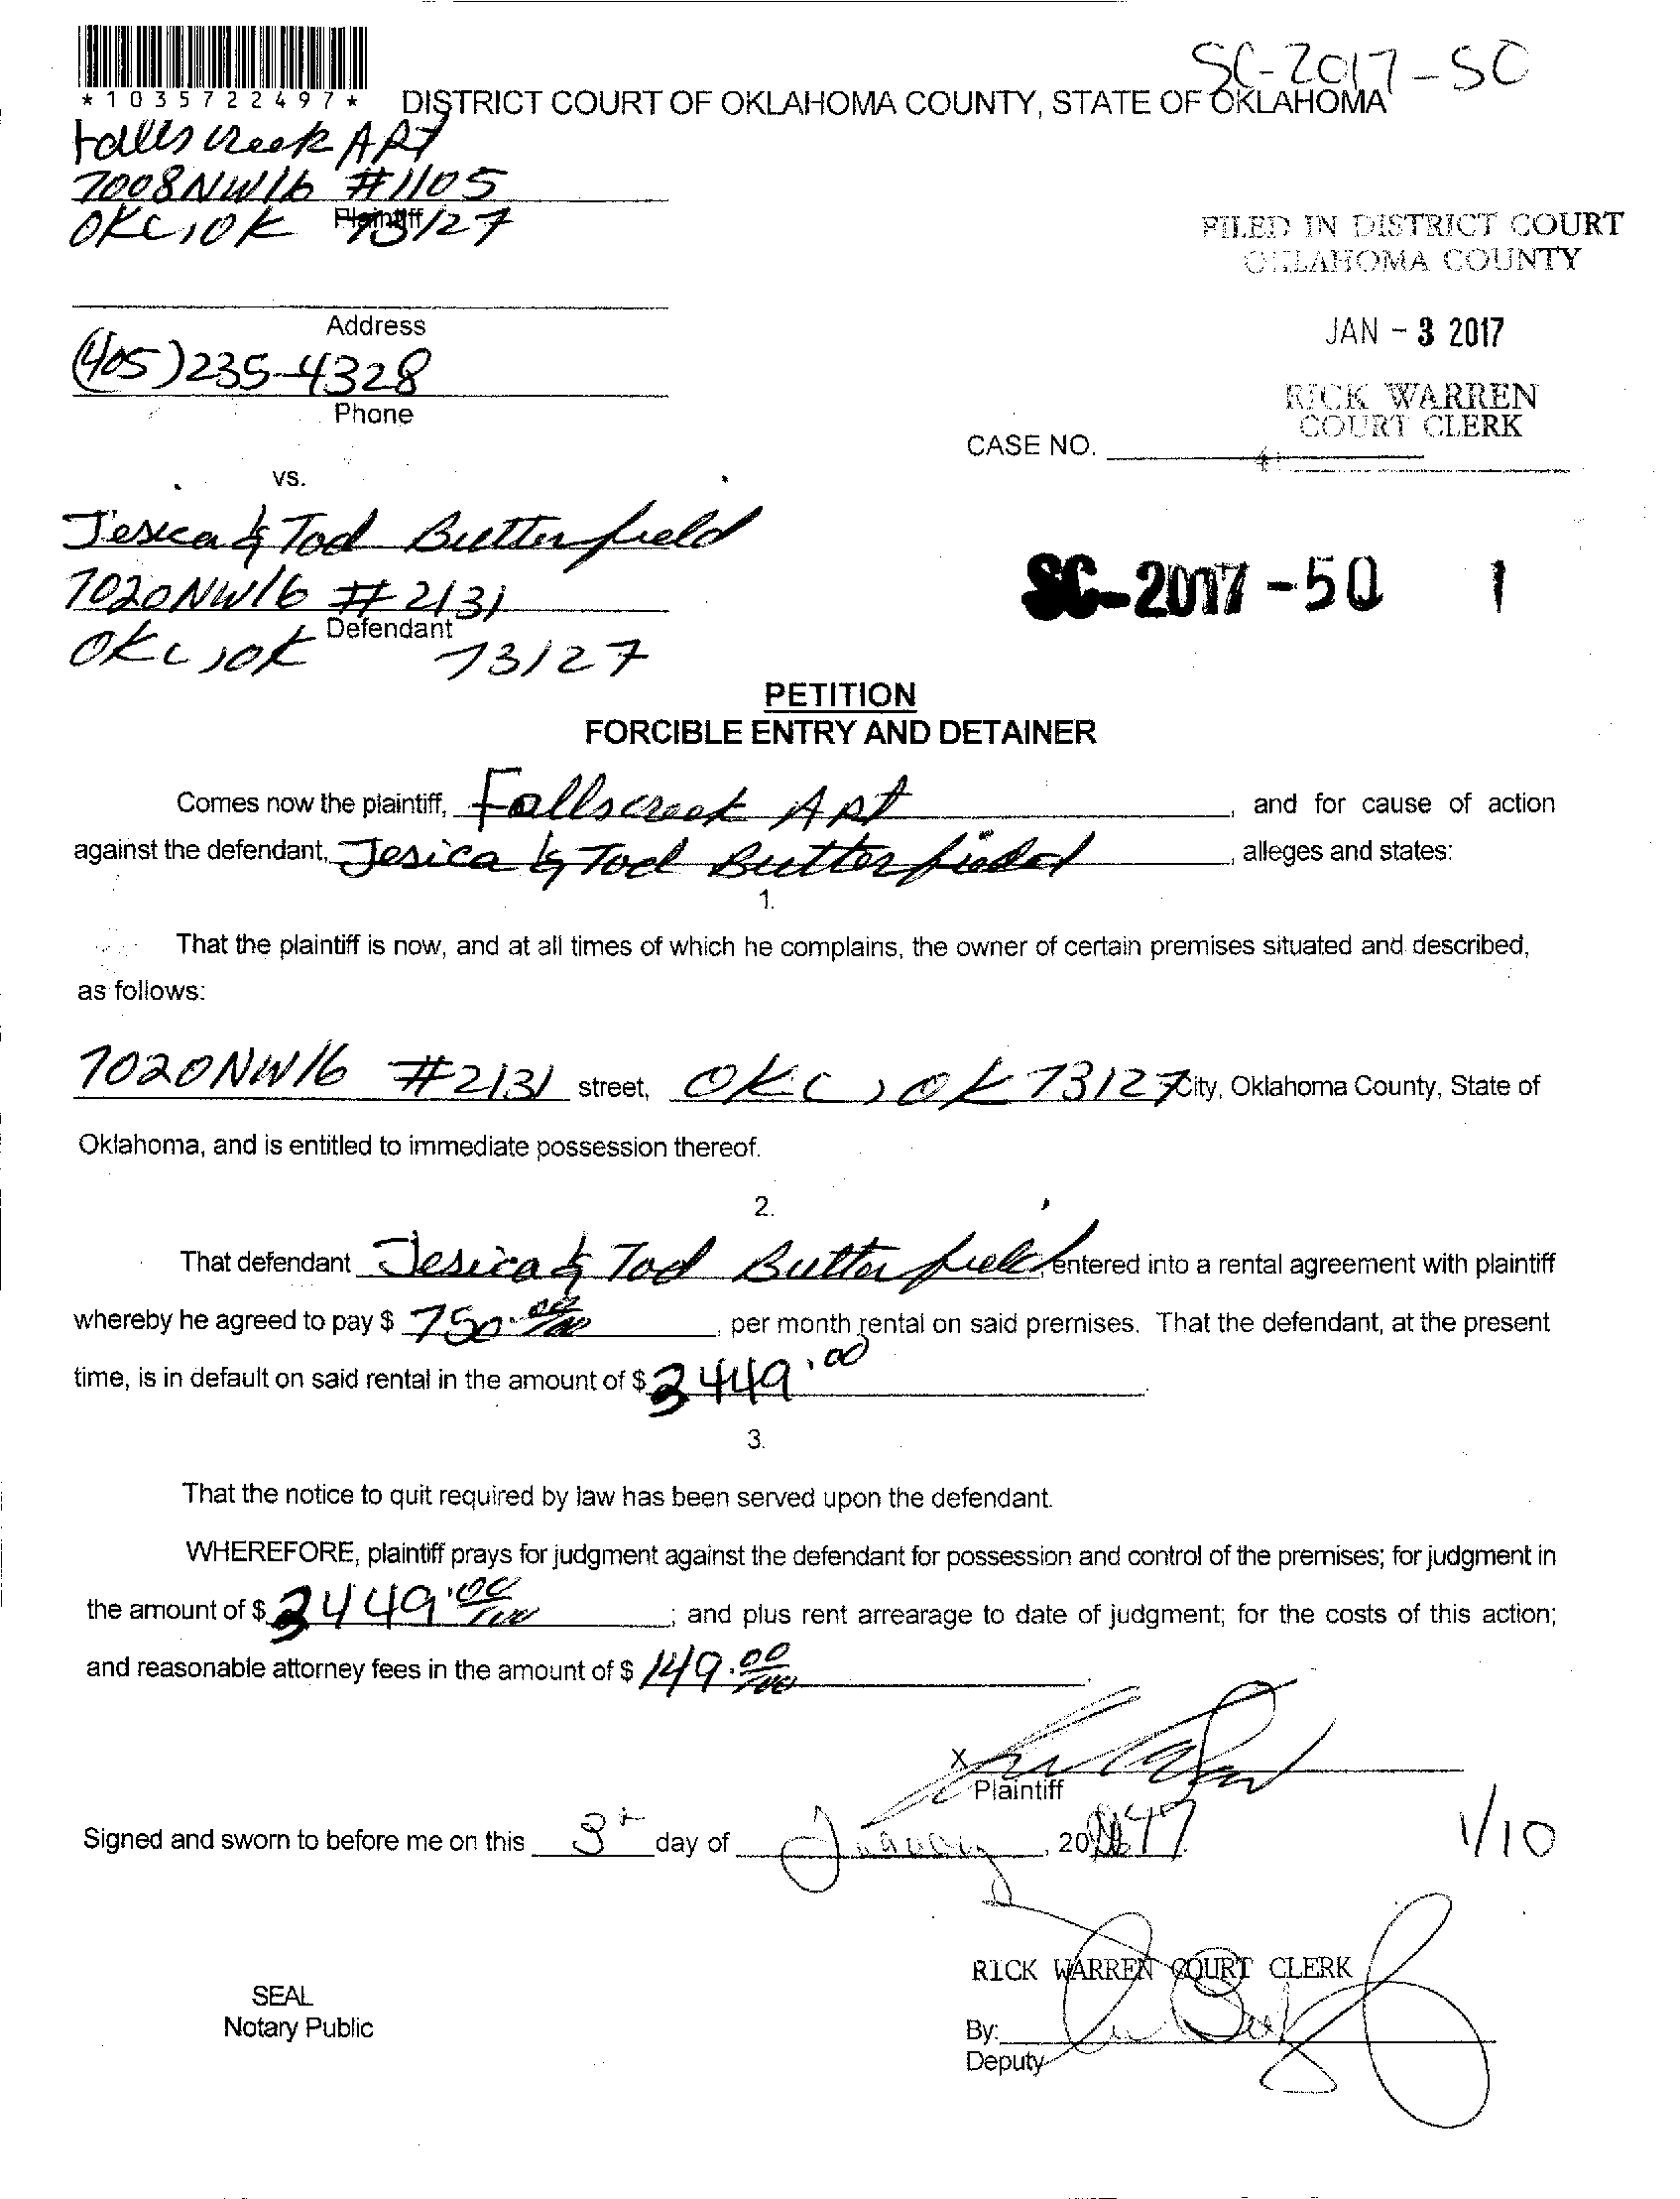 *1035722497*
SC-2017-50
DISTRICT COURT OF OKLAHOMA COUNTY, STATE OF OKLAHOMA
Falls creek APT
7008 NW 16 #1105
Plaintiff
OKC, OK 73127
FILED IN DISTRICT COURT
OKLAHOMA COUNTY
Address
JAN - 3 2017
(405) 235-4328
Phone
RICK WARREN
COURT CLERK
CASE NO.
vs.
Jesica & Tod Butterfield
7020 NW 16 # 2131
Defendant
OKC, OK 73127
SC-2017-50 1
PETITION
FORCIBLE ENTRY AND DETAINER
Comes now the plaintiff, Fallscreek APT, and for cause of action
against the defendant, Jesica & Tod Butterfield, alleges and states:
1.
That the plaintiff is now, and at all times of which he complains, the owner of certain premises situated and described,
as follows:
7020 NW 16 #2131 street, OKC, OK 73127 City, Oklahoma County, State of
Oklahoma, and is entitled to immediate possession thereof.
2.
That defendant Jesica & Tod Butterfield, entered into a rental agreement with plaintiff
whereby he agreed to pay $ 750.00/100, per month rental on said premises. That the defendant, at the present
time, is in default on said rental in the amount of $ 2449.00.
3.
That the notice to quit required by law has been served upon the defendant.
WHEREFORE, plaintiff prays for judgment against the defendant for possession and control of the premises; for judgment in
the amount of $ 2449.00/100; and plus rent arrearage to date of judgment; for the costs of this action;
and reasonable attorney fees in the amount of $ 149.00/100.
X
Plaintiff
Signed and sworn to before me on this 3rd day of January, 2017
1/10
RICK WARREN COURT CLERK
SEAL
Notary Public
By:
Deputy